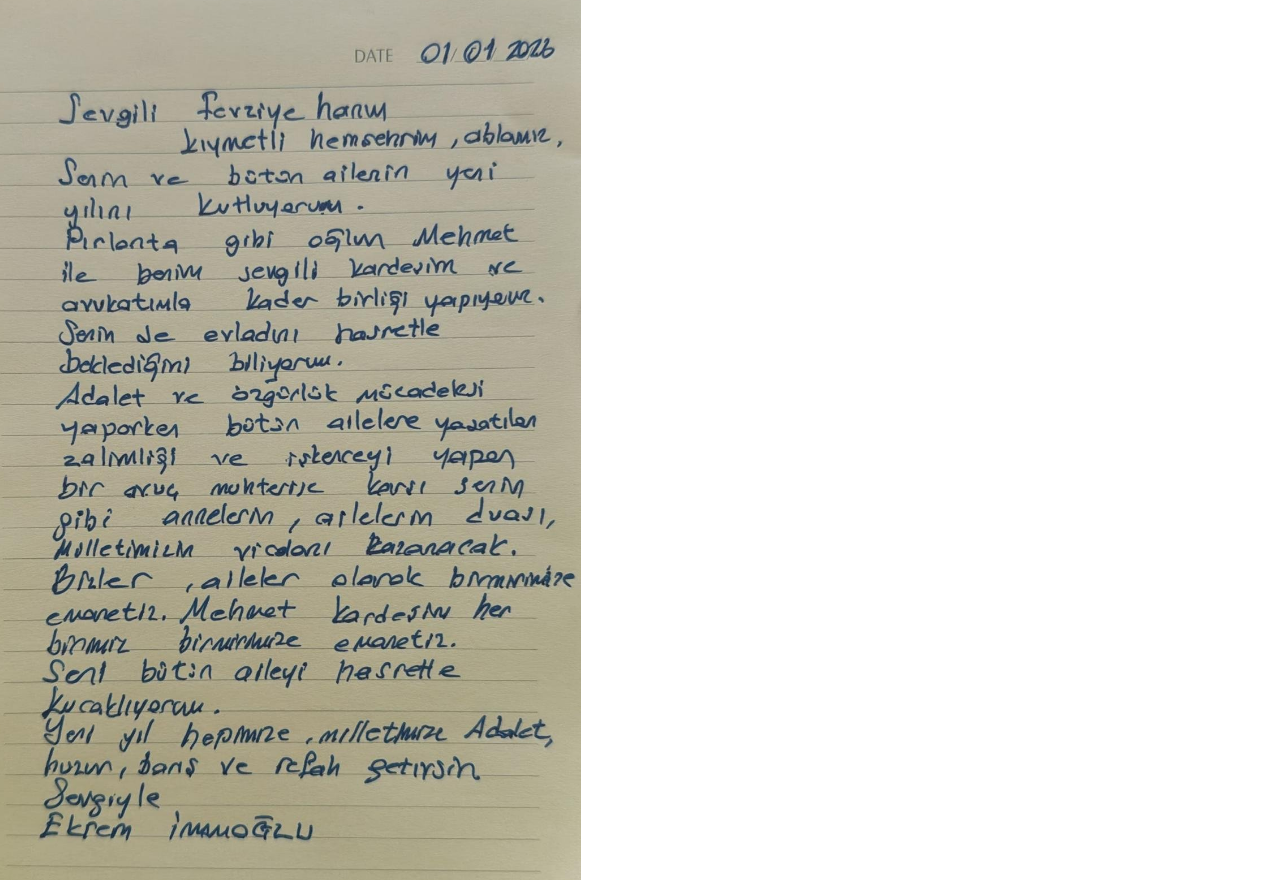 DATE 01/01 2026
Sevgili Fevziye hanım
kıymetli hemşehrim, ablamız,
Senin ve bütün ailenin yeni
yılını kutluyorum.
Pırlanta gibi oğlun Mehmet
ile benim sevgili kardeşim ve
avukatımla kader birliği yapıyoruz.
Senin de evladını hasretle
beklediğini biliyorum.
Adalet ve özgürlük mücadelesi
yaparken bütün ailelere yaşatılan
zalimliği ve işkenceyi yapan
bir avuç muhterise karşı senin
gibi annelerin, ailelerin duası,
Milletimizin vicdanı kazanacak.
Bizler, aileler olarak birbirimize
emanetiz. Mehmet kardeşim her
birimiz birbirimize emanetiz.
Seni bütün aileyi hasretle
kucaklıyorum.
Yeni yıl hepimize, milletimize Adalet,
huzur, barış ve refah getirsin
Sevgiyle
Ekrem İMAMOĞLU